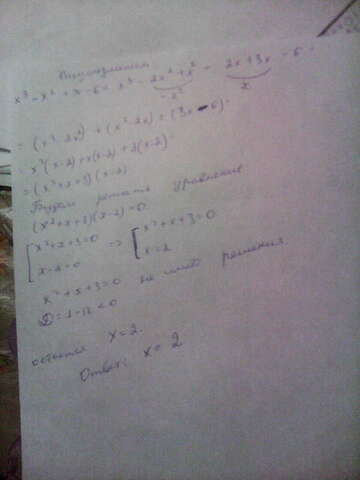 x³ - x² + x - 6 = x³ - 2x² + x² - 2x + 3x - 6 =
-x² x
= (x³ - 2x²) + (x² - 2x) + (3x - 6) =
= x²(x-2) + x(x-2) + 3(x-2) =
= (x² + x + 3)(x-2)
Будем решать уравнение
(x² + x + 3)(x-2) = 0
[x² + x + 3 = 0 ⇒ [x² + x + 3 = 0
x - 2 = 0 x = 2
x² + x + 3 = 0 не имеет решения
D = 1 - 12 < 0
x = 2.
Ответ: x = 2